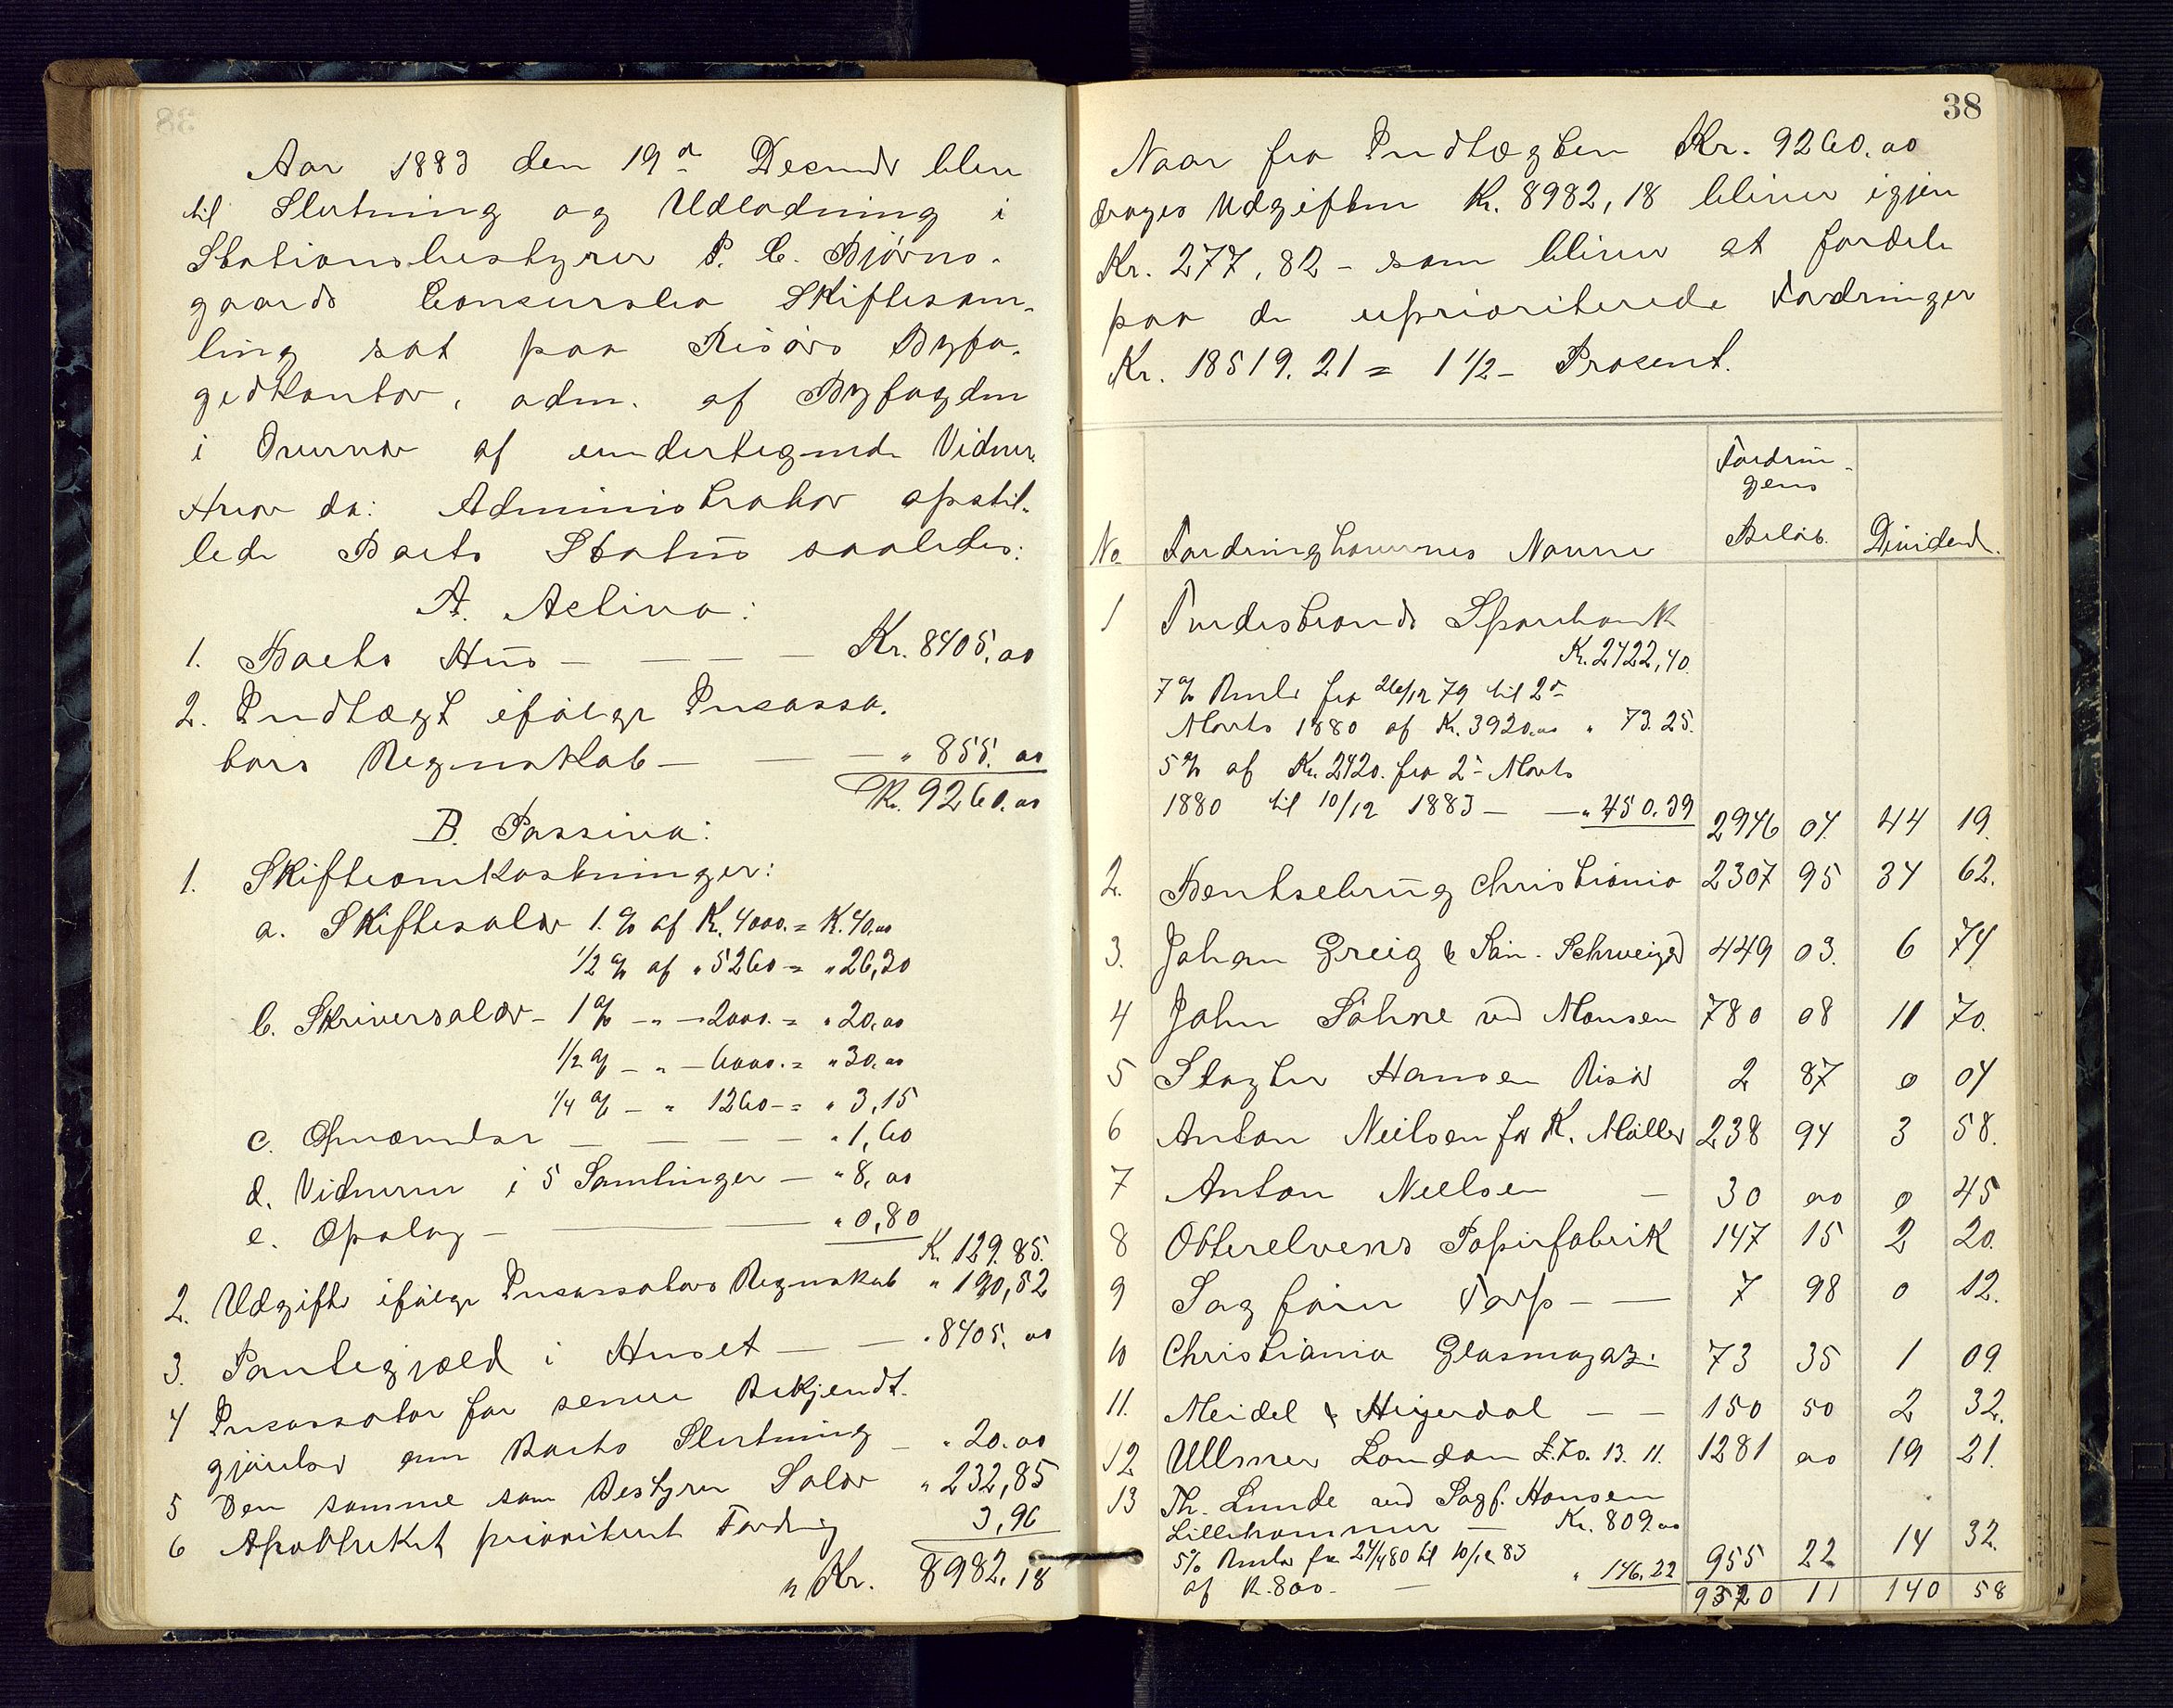 Aar 1883 den 19de Decembr blev
til Slutning og Udlodning i
Stationsbestyrer P. C. Bjørns-
gaards Concursbo Skiftesam-
ling sat paa Risørs Byfo-
gedkontor, adm. af Byfogden
i Overvær af undertegnede Vidner.
Hvor da: Administrator opstil-
lede Boets Status saaledes:
A. Activa:
1. Boets Hus — — — — Kr. 8405,00
2. Indtægt ifølge Incassa-
tors Regnskab — — — " 855,00
Kr. 9260,00
B. Passiva:
1. Skifteomkostninger:
a. Skiftesalær 1. % af Kr. 4000. = K. 40,00
1/2 % af " 5260 = " 26,30
b. Skriversalær — 1 % — " — 2000. = " 20,00
1/2 % — " — 6000. = " 30,00
1/4 % — " 1260 — = " 3,15
c. Opnævnelse — — — — " 1,60
d. Vidnerne i 5 Samlinger — " 8,00
e. Opslag — — — " 0,80
K. 129.85.
2. Udgifter ifølge Incassators Regnskab " 190,52
3. Pantegjæld i Huset — — " 8405,00
4 Incassator for senere Bekjendt-
gjørelser om Boets Slutning — " 20,00
5 Den samme som Bestyrer Salær " 232,85
6 Apothekets prioriteret Fordring 3,96
Kr. 8982.18
38
Naar fra Indtægten Kr. 9260.00
drages Udgiften Kr. 8982,18 bliver igjen
Kr. 277,82 – som bliver at fordele
paa de uprioriterede Fordringer
Kr. 18519.21 = 1 1/2 – Procent.
No Fordringshavernes Navne Fordrin-
gens
Beløb. Dividend.
1 Turdestrands Sparebank
Kr. 2422,40.
7 % Rente fra 26/12 79 til 2de
Marts 1880 af Kr. 3920.00 " 73.25.
5 % af Kr. 2420. fra 2de Marts
1880 til 10/12 1883 — — " 450.39 2946 04. 44 19.
2. Bentsebrug Christiania 2307 95 34 62.
3. Johan Greig & Søn. Schweigd 449 03. 6 74
4 John Söhne ved Monsen 780 08 11 70.
5 Slagter Hansen Risør 2 87 0 04
6 Anton Neilsen for K. Møller 238 94 3 58.
7 Anton Neilsen — 30 00 0 45
8 Otterelvens Papirfabrik 147 15 2 20.
9 Sagfører Torp — — 7 98 0 12.
10 Christiania Glasmagazin 73 35 1 09.
11. Meidel & Heyerdal — — 150 50 2 32.
12 Ullmer London £. 70. 13. 11. 1281 00 19 21.
13 Th. Lunde ved Sagf. Hansen
Lillehammer — Kr. 809.00
5% Rente fra 24/4 80 til 10/12 83
af K. 800. — " 146.22 955 22 14 32.
9370 11 140 58